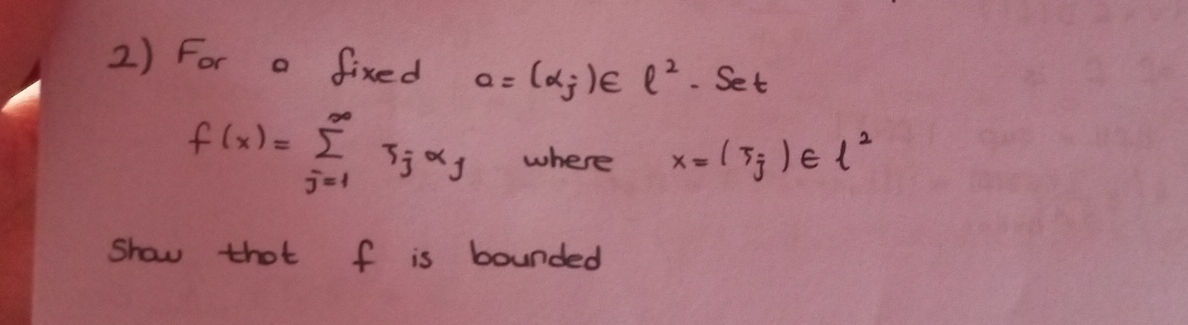 2) For a fixed a = (αj) ∈ ℓ². Set
f(x) = ∑_{j=1}^{∞} ξj αj where x = (ξj) ∈ ℓ²
Show that f is bounded